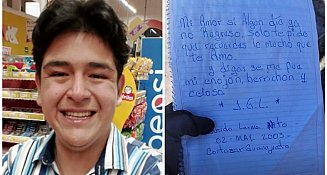 pepsi
Mi Amor si Algún día ya
no Regreso, solo te pido
que recuerdes lo mucho que
te Amo.
y digas se me fue
mi enojón, berrinchon y
celoso.
* J.G.L. *
02-May 2003-
Cortazar Guanajuato